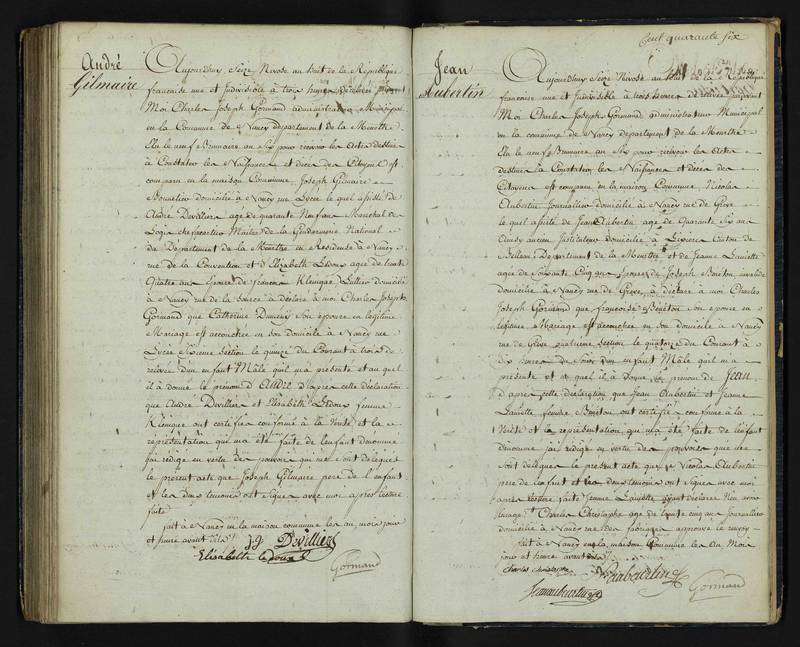 André
Gilmaire
Aujourdhuy Seize Nivose an huit de la République
francoise une et Indivisible à trois heures de relevé pardevant
Moi Charles Joseph Gormand administrateur Municipal
en la Commune de Nancy département de la Meurthe
Elu le neuf Brumaire an Six pour recevoir les Actes destinés
à Constater les Naissances et décès des Citoyens est
comparu en la maison Commune Joseph Gilmaire
Bonnetier domicilié à Nancy rue Lycée le quel assisté de
André Devillier age de quarante Neuf ans Marechal de
Logis de la Gendarmerie National
du Département de la Meurthe en Residense à Nancy
rue de la Convention et d'Elizabeth Ledoux agée de trente
Quatre ans Epouse de francois Kleinque Luttier domicilié
à Nancy rue de la Source à déclaré à moi Charles Joseph
Gormand que Catherine Son épouse en légitime
Mariage est accouchée en son domicile à Nancy rue
Lycée Sixieme Section le quinze du Courant à trois de
relevée d'un enfant Mâle quil m'a présenté et au quel
il à donné le prénom d'André d'après cette déclaration
que André Devillier et Elisabeth Ledoux femme
Kleinque ont certifiée conforme à la Vérité et la
représentation qui ma été faite de lenfant dénommé
jai rédigé en vertu des pouvoirs qui me sont délégués
le présent acte que Joseph Gilmaire pere de l'enfant
et les deux temoins ont signé avec moi après lecture
faite
fait à Nancy en la maison commune les an mois jour
et heure avant dits
j. g Devillier
Elisabeth Ledoux
Gormand
Cent quarante six
Jean
Aubertin
Aujourdhuy Seize Nivose an huit de la République
francoise une et Indivisible à trois heures de relevé pardevant
Moi Charles Joseph Gormand administrateur Municipal
en la commune de Nancy département de la Meurthe
Elu le neuf Brumaire an Six pour recevoir les Actes
destinés à Constater les Naissances et décès des
Citoyens est comparu en la maison Commune Nicolas
Aubertin Journallier domicilié à Nancy rue de Grève
le quel assisté de Jean Aubertin age de Quarante Six ans
ancien Instituteur domicilié à Canton de
Département de la Meurthe et de Jeanne Laniette
agée de Soixante Cinq ans Epouse de Joseph Boiéton invalide
domicilié à Nancy rue de Grève, à déclaré à moi Charles
Joseph Gormand que francoise Boiéton son épouse en
légitime Mariage est accouchée en son domicile à Nancy
rue de Grève quatrieme Section le quatorze du Courant à
Dix heures du soir d'un enfant Mâle quil m'a
présenté et au quel il à donné le prénom de Jean
d'après cette déclaration que Jean Aubertin et Jeanne
Laniette femme Boiéton ont certifiée conforme à la
Vérité et la représentation qui ma été faite de lenfant
dénommé jai rédigé en vertu des pouvoirs qui me
sont délégués le présent acte que Nicolas Aubertin
pere de lenfant et les deux temoins ont signé avec moi
après lecture faite Jeanne Laniette ayant déclaré
Charles Christophe age de trente cinq ans Journallier
domicilié à Nancy rue des fabriques approuvé le renvoy
fait à Nancy en la maison Commune les an Mois
jour et heure avant dits
charles christophe N aubertin
Jean aubertin Gormand